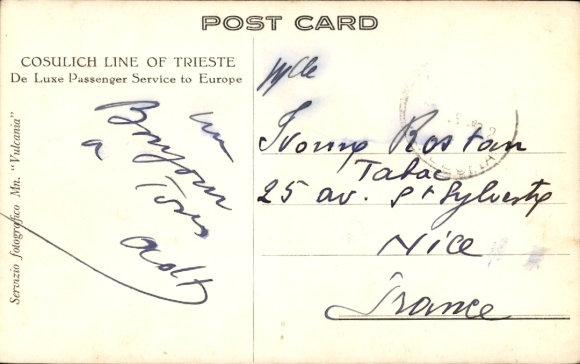 POST CARD
COSULICH LINE OF TRIESTE
De Luxe Passenger Service to Europe
Servizio fotografico Mn. "Vulcania"
un
Bonjour
a Tous
Mlle
Yvonne Rostan
Tabac
25 av. St Sylvestre
Nice
France